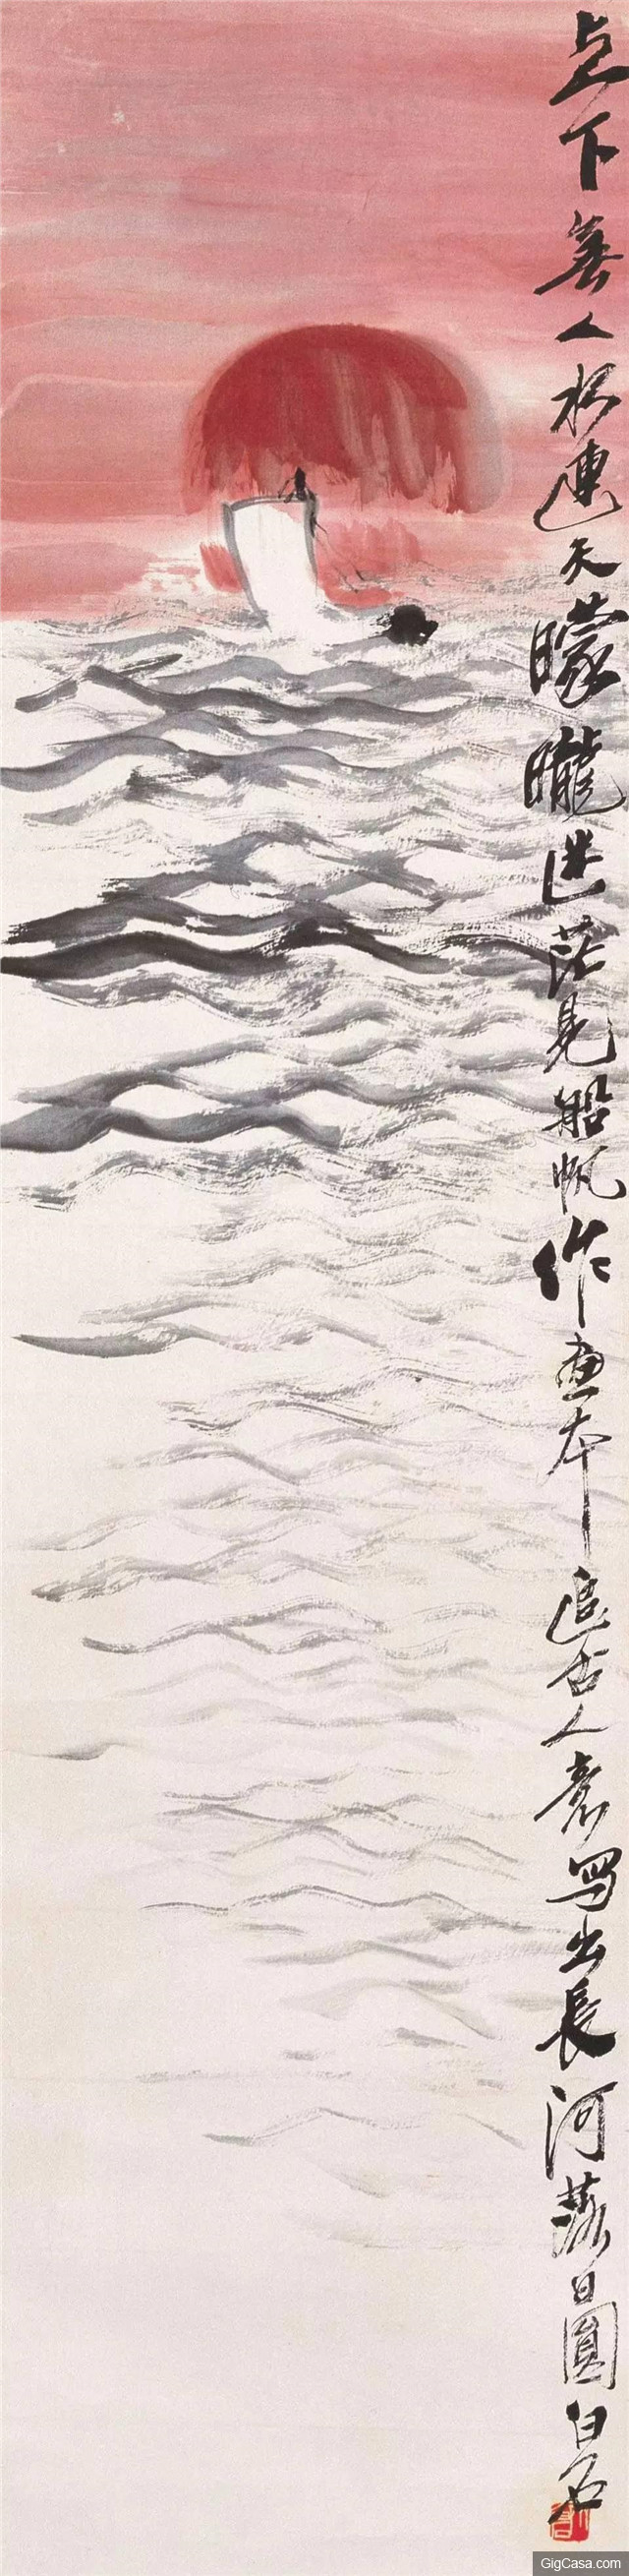 下無人水連天曚曨迷茫見船帆作畫本追古人意寫出長河落日圓白石
GigCasa.com